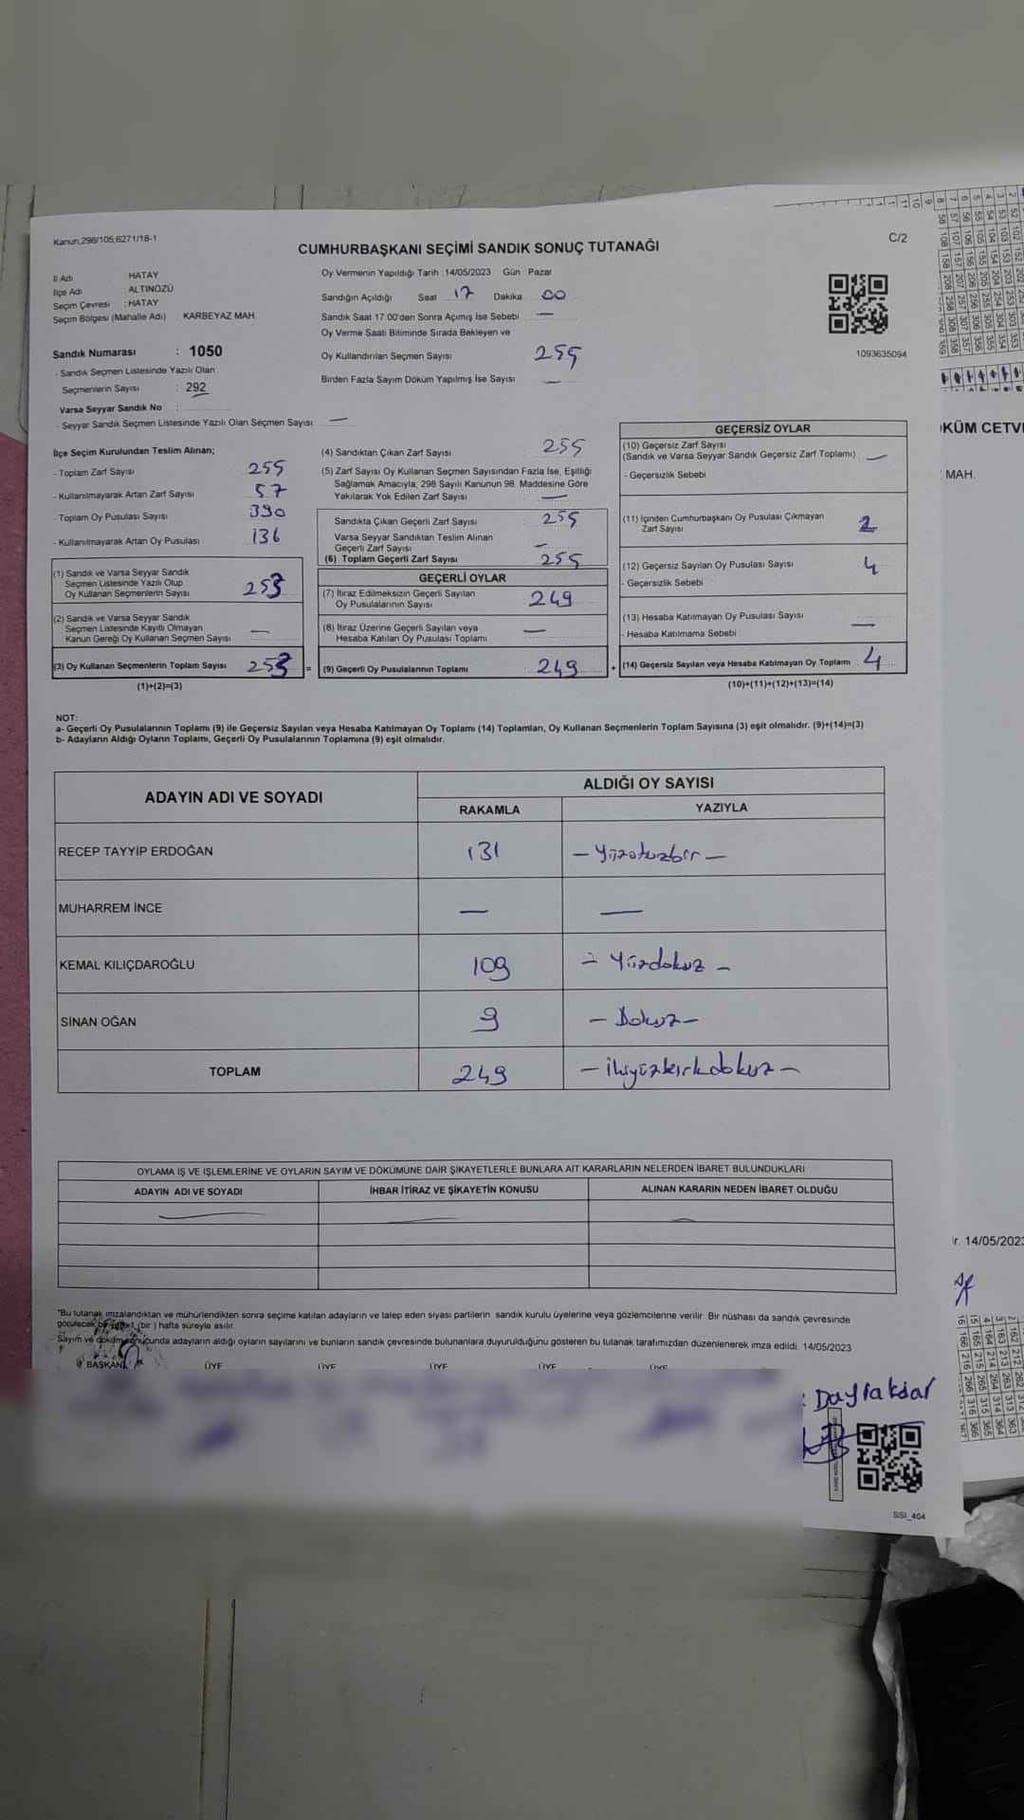 Kanun,298/105;6271/18-1
CUMHURBAŞKANI SEÇİMİ SANDIK SONUÇ TUTANAĞI
C/2
İl Adı HATAY
İlçe Adı : ALTINÖZÜ
Seçim Çevresi : HATAY
Seçim Bölgesi (Mahalle Adı) KARBEYAZ MAH.
Sandık Numarası : 1050
- Sandık Seçmen Listesinde Yazılı Olan
Seçmenlerin Sayısı : 292
Varsa Seyyar Sandık No :
- Seyyar Sandık Seçmen Listesinde Yazılı Olan Seçmen Sayısı —
Oy Vermenin Yapıldığı Tarih :14/05/2023 Gün Pazar
Sandığın Açıldığı Saat 17 Dakika 00
Sandık Saat 17:00'den Sonra Açılmış İse Sebebi —
Oy Verme Saati Bitiminde Sırada Bekleyen ve
Oy Kullandırılan Seçmen Sayısı 255
Birden Fazla Sayım Döküm Yapılmış İse Sayısı —
1093635094
İlçe Seçim Kurulundan Teslim Alınan;
- Toplam Zarf Sayısı 255
- Kullanılmayarak Artan Zarf Sayısı 57
- Toplam Oy Pusulası Sayısı 390
- Kullanılmayarak Artan Oy Pusulası 136
(1) Sandık ve Varsa Seyyar Sandık
Seçmen Listesinde Yazılı Olup
Oy Kullanan Seçmenlerin Sayısı 253
(2) Sandık ve Varsa Seyyar Sandık
Seçmen Listesinde Kayıtlı Olmayan
Kanun Gereği Oy Kullanan Seçmen Sayısı —
(3) Oy Kullanan Seçmenlerin Toplam Sayısı 253 =
(1)+(2)=(3)
(4) Sandıktan Çıkan Zarf Sayısı 255
(5) Zarf Sayısı Oy Kullanan Seçmen Sayısından Fazla İse, Eşitliği
Sağlamak Amacıyla; 298 Sayılı Kanunun 98. Maddesine Göre
Yakılarak Yok Edilen Zarf Sayısı —
Sandıkta Çıkan Geçerli Zarf Sayısı 255
Varsa Seyyar Sandıktan Teslim Alınan
Geçerli Zarf Sayısı —
(6) Toplam Geçerli Zarf Sayısı 255
GEÇERLİ OYLAR
(7) İtiraz Edilmeksizin Geçerli Sayılan
Oy Pusulalarının Sayısı 249
(8) İtiraz Üzerine Geçerli Sayılan veya
Hesaba Katılan Oy Pusulası Toplamı —
(9) Geçerli Oy Pusulalarının Toplamı 249 +
GEÇERSİZ OYLAR
(10) Geçersiz Zarf Sayısı
(Sandık ve Varsa Seyyar Sandık Geçersiz Zarf Toplamı) —
- Geçersizlik Sebebi
(11) İçinden Cumhurbaşkanı Oy Pusulası Çıkmayan
Zarf Sayısı 2
(12) Geçersiz Sayılan Oy Pusulası Sayısı 4
- Geçersizlik Sebebi
(13) Hesaba Katılmayan Oy Pusulası Sayısı —
- Hesaba Katılmama Sebebi
(14) Geçersiz Sayılan veya Hesaba Katılmayan Oy Toplamı 4
(10)+(11)+(12)+(13)=(14)
NOT:
a- Geçerli Oy Pusulalarının Toplamı (9) ile Geçersiz Sayılan veya Hesaba Katılmayan Oy Toplamı (14) Toplamları, Oy Kullanan Seçmenlerin Toplam Sayısına (3) eşit olmalıdır. (9)+(14)=(3)
b- Adayların Aldığı Oyların Toplamı, Geçerli Oy Pusulalarının Toplamına (9) eşit olmalıdır.
ADAYIN ADI VE SOYADI ALDIĞI OY SAYISI
RAKAMLA YAZIYLA
RECEP TAYYİP ERDOĞAN 131 — Yüzotuzbir —
MUHARREM İNCE — —
KEMAL KILIÇDAROĞLU 109 — Yüzdokuz —
SİNAN OĞAN 9 — Dokuz —
TOPLAM 249 — İkiyüzkırkdokuz —
OYLAMA İŞ VE İŞLEMLERİNE VE OYLARIN SAYIM VE DÖKÜMÜNE DAİR ŞİKAYETLERLE BUNLARA AİT KARARLARIN NELERDEN İBARET BULUNDUKLARI
ADAYIN ADI VE SOYADI İHBAR İTİRAZ VE ŞİKAYETİN KONUSU ALINAN KARARIN NEDEN İBARET OLDUĞU
*Bu tutanak imzalandıktan ve mühürlendikten sonra seçime katılan adayların ve talep eden siyasi partilerin sandık kurulu üyelerine veya gözlemcilerine verilir. Bir nüshası da sandık çevresinde
görülecek bir (bir) hafta süreyle asılır.
Sayım ve sonucunda adayların aldığı oyların sayılarını ve bunların sandık çevresinde bulunanlara duyurulduğunu gösteren bu tutanak tarafımızdan düzenlenerek imza edildi. 14/05/2023
BAŞKAN ÜYE ÜYE ÜYE ÜYE ÜYE
SSI_404
KÜM CETV
MAH.
r. 14/05/2023